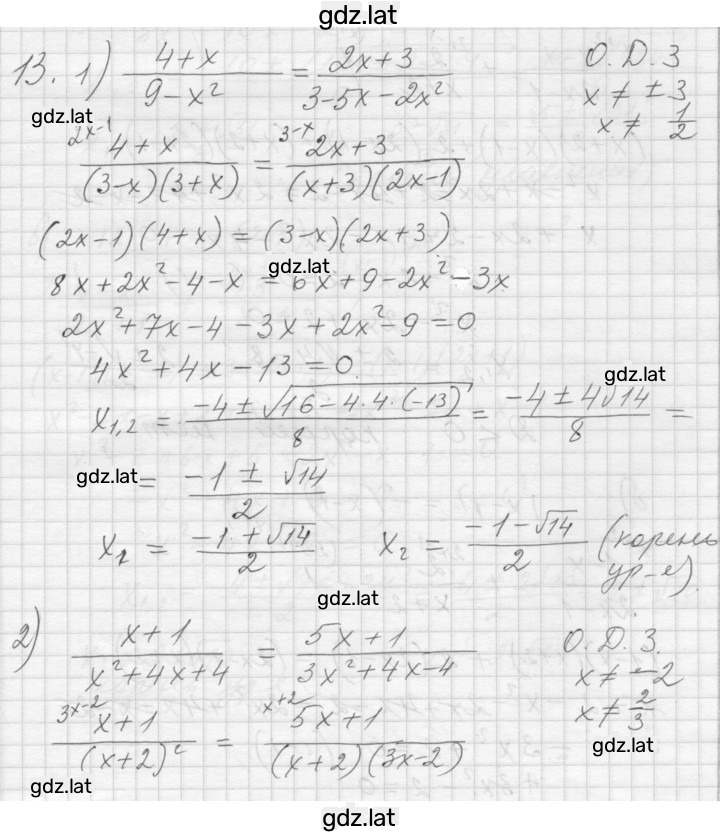 gdz.lat
13. 1) (4+x)/(9-x²) = (2x+3)/(3-5x-2x²)   О.Д.З
x ≠ ±3
gdz.lat
x ≠ 1/2
2x-1   3-x
(4+x)/((3-x)(3+x)) = (2x+3)/((x+3)(2x-1))
(2x-1)(4+x) = (3-x)(2x+3)
gdz.lat
8x+2x²-4-x = 6x+9-2x²-3x
2x²+7x-4-3x+2x²-9=0
4x²+4x-13=0.
gdz.lat
x₁,₂ = (-4±√(16-4·4·(-13)))/8 = (-4±4√14)/8 =
gdz.lat
= (-1 ± √14)/2
x₁ = (-1+√14)/2   x₂ = (-1-√14)/2 (корень
ур-е).
gdz.lat
2) (x+1)/(x²+4x+4) = (5x+1)/(3x²+4x-4)   О.Д.З.
x ≠ -2
x ≠ 2/3
3x-2   x+2
(x+1)/(x+2)² = (5x+1)/((x+2)(3x-2))
gdz.lat
gdz.lat
gdz.lat